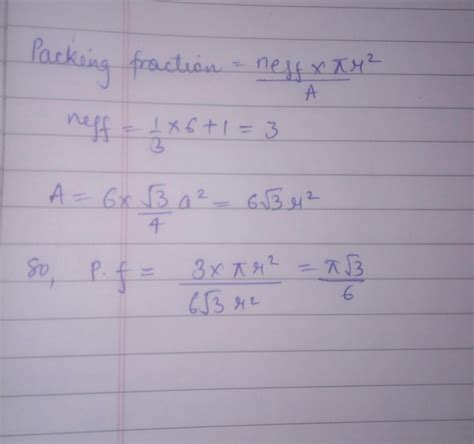 Packing fraction = neff × πr² / A
neff = 1/3 × 6 + 1 = 3
A = 6 × √3/4 a² = 6√3 r²
So, P.f = 3 × πr² / 6√3 r² = π√3 / 6